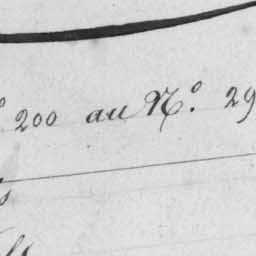 200 au N.º 29